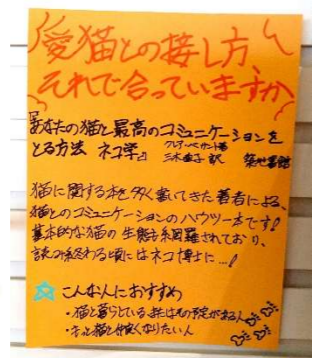 愛猫との接し方、
それで合っていますか
『あなたの猫と最高のコミュニケーションを
とる方法 ネコ学』
クレア・ベサント著
三木直子 訳 築地書館
猫に関する本を多く書いてきた著者による、
猫とのコミュニケーションのハウツー本です!
基本的な猫の生態も網羅されており、
読み終わる頃にはネコ博士に…!
☆ こんな人におすすめ
・猫と暮らしている、またはその予定がある人
・もっと猫と仲良くなりたい人